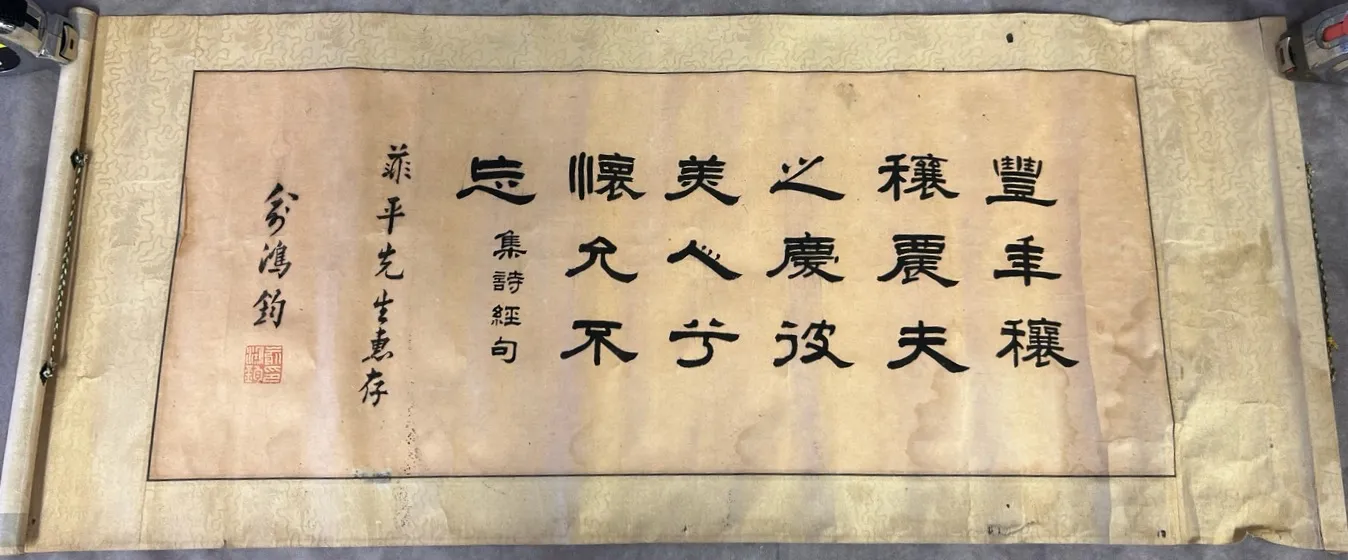 豐年穰
穰農夫
之慶彼
美人兮
懷允不
忘
集詩經句
菲平先生惠存
俞鴻鈞
俞印鴻鈞